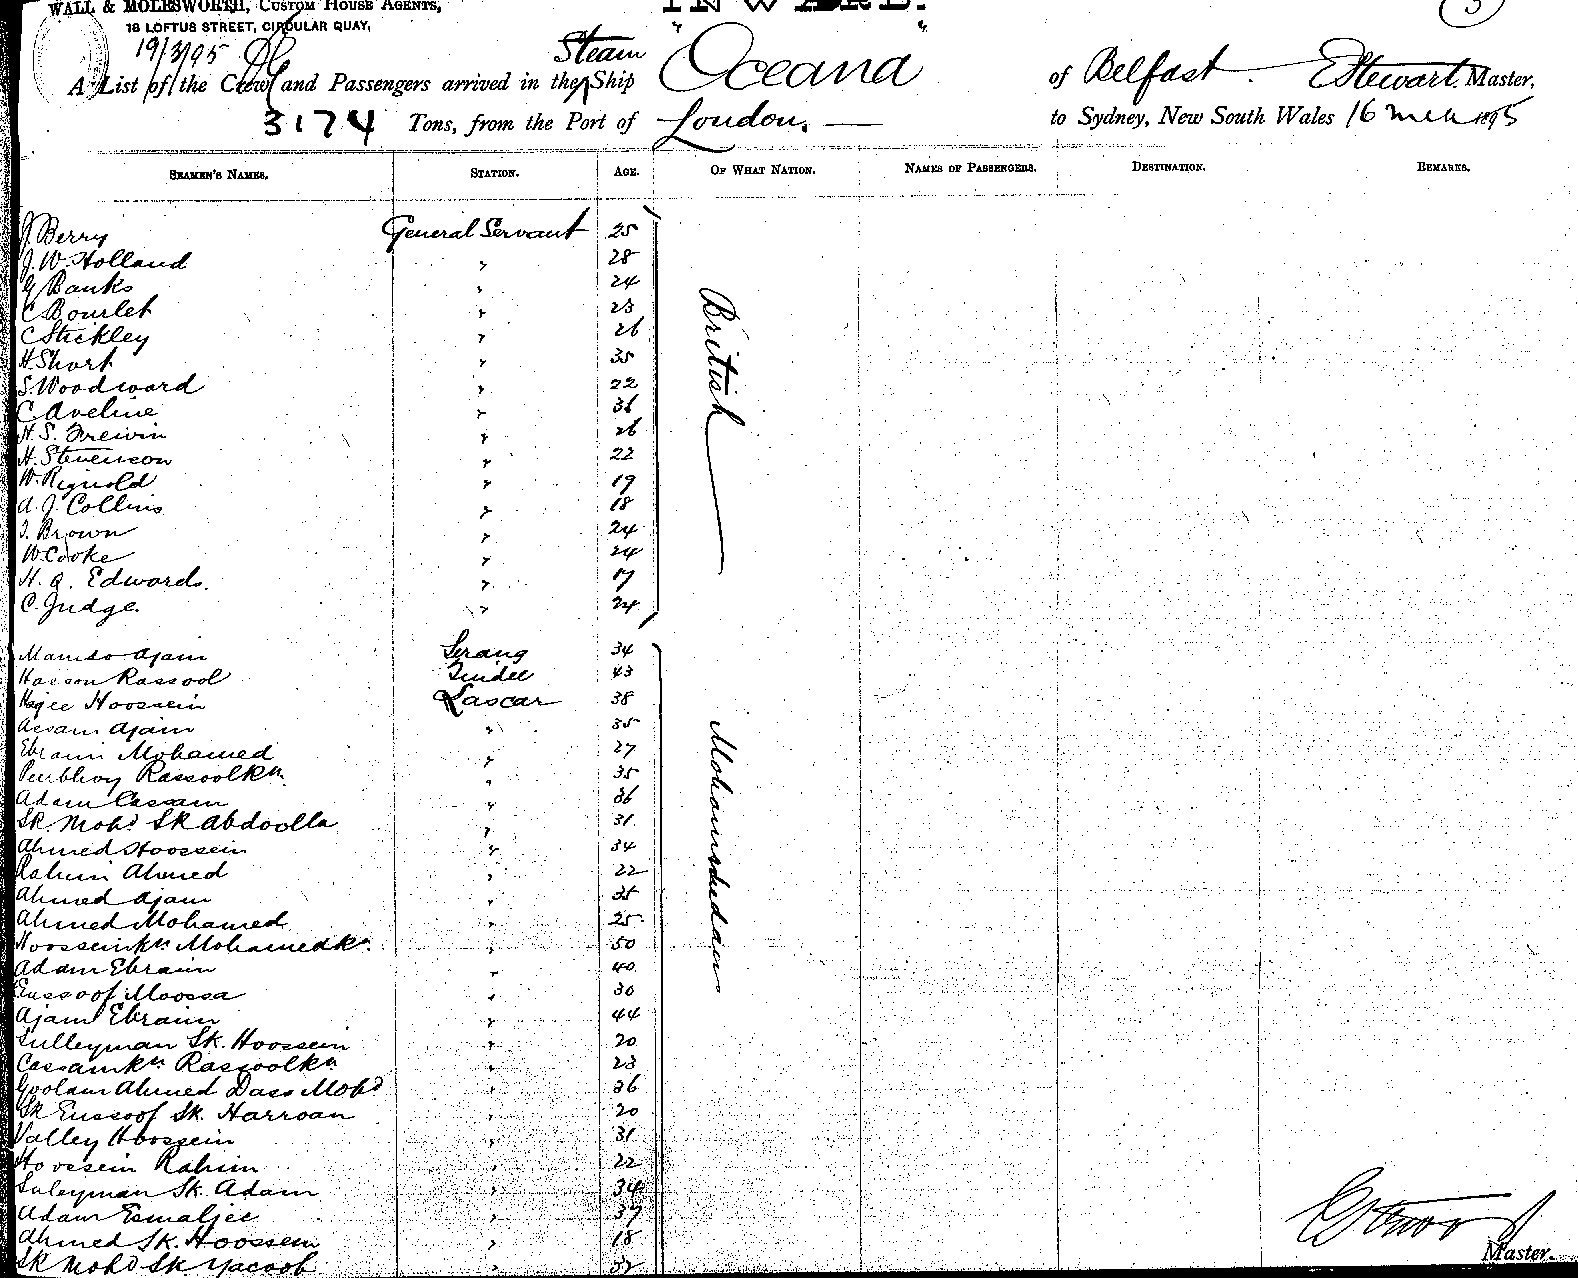 WALL & MOLESWORTH, CUSTOM HOUSE AGENTS,
18 LOFTUS STREET, CIRCULAR QUAY,
INWARD.
3
19/3/95
A List of the Crew and Passengers arrived in the Steam Ship "Oceana" of Belfast. E Stewart. Master,
3174 Tons, from the Port of London. to Sydney, New South Wales 16 Mch 1895
SEAMEN'S NAMES. STATION. AGE. OF WHAT NATION. NAMES OF PASSENGERS. DESTINATION. REMARKS.
J. Berry General Servant 25 British
J. W. Holland " 28
G Banks " 24
C Bourlet " 23
C Stickley " 26
H. Short " 35
S. Woodward " 22
C Aveline " 36
H. S. Freivin " 26
H. Stevenson " 22
W. Rignold " 19
A. J. Collins " 18
J. Brown " 24
W. Cooke " 24
H. A. Edwards. " 17
C. Judge. " 24
Ajam Serang 34 Mohamedan
Hasson Rassool Tindel 43
Hajee Hoossein Lascar 38
Assam Ajam " 35
Ebraim Mohamed " 27
Peerbhoy Rassoolkn. " 35
Adam Cassam " 36
Sk. Mohd Sk Abdoolla " 31
Ahmed Hoossein " 34
Rahim Ahmed " 22
Ahmed Ajam " 35
Ahmed Mohamed " 25
Hoosseinkn Mohamedkn. " 50
Adam Ebraim " 40
Eussoof Moossa " 30
Ajam Ebraim " 44
Sulleyman Sk. Hoossein " 20
Cassamkn Rassoolkn " 23
Goolam Ahmed Dass Mohd " 36
Sk Eussoof Sk. Harroan " 20
Valley Hoossein " 31
Hoossein Rahim " 22
Suleyman Sk. Adam " 34
Adam Esmaljee " 37
Ahmed Sk. Hoossein " 18
Sk Mohd Sk Yacoob " 32
Master.